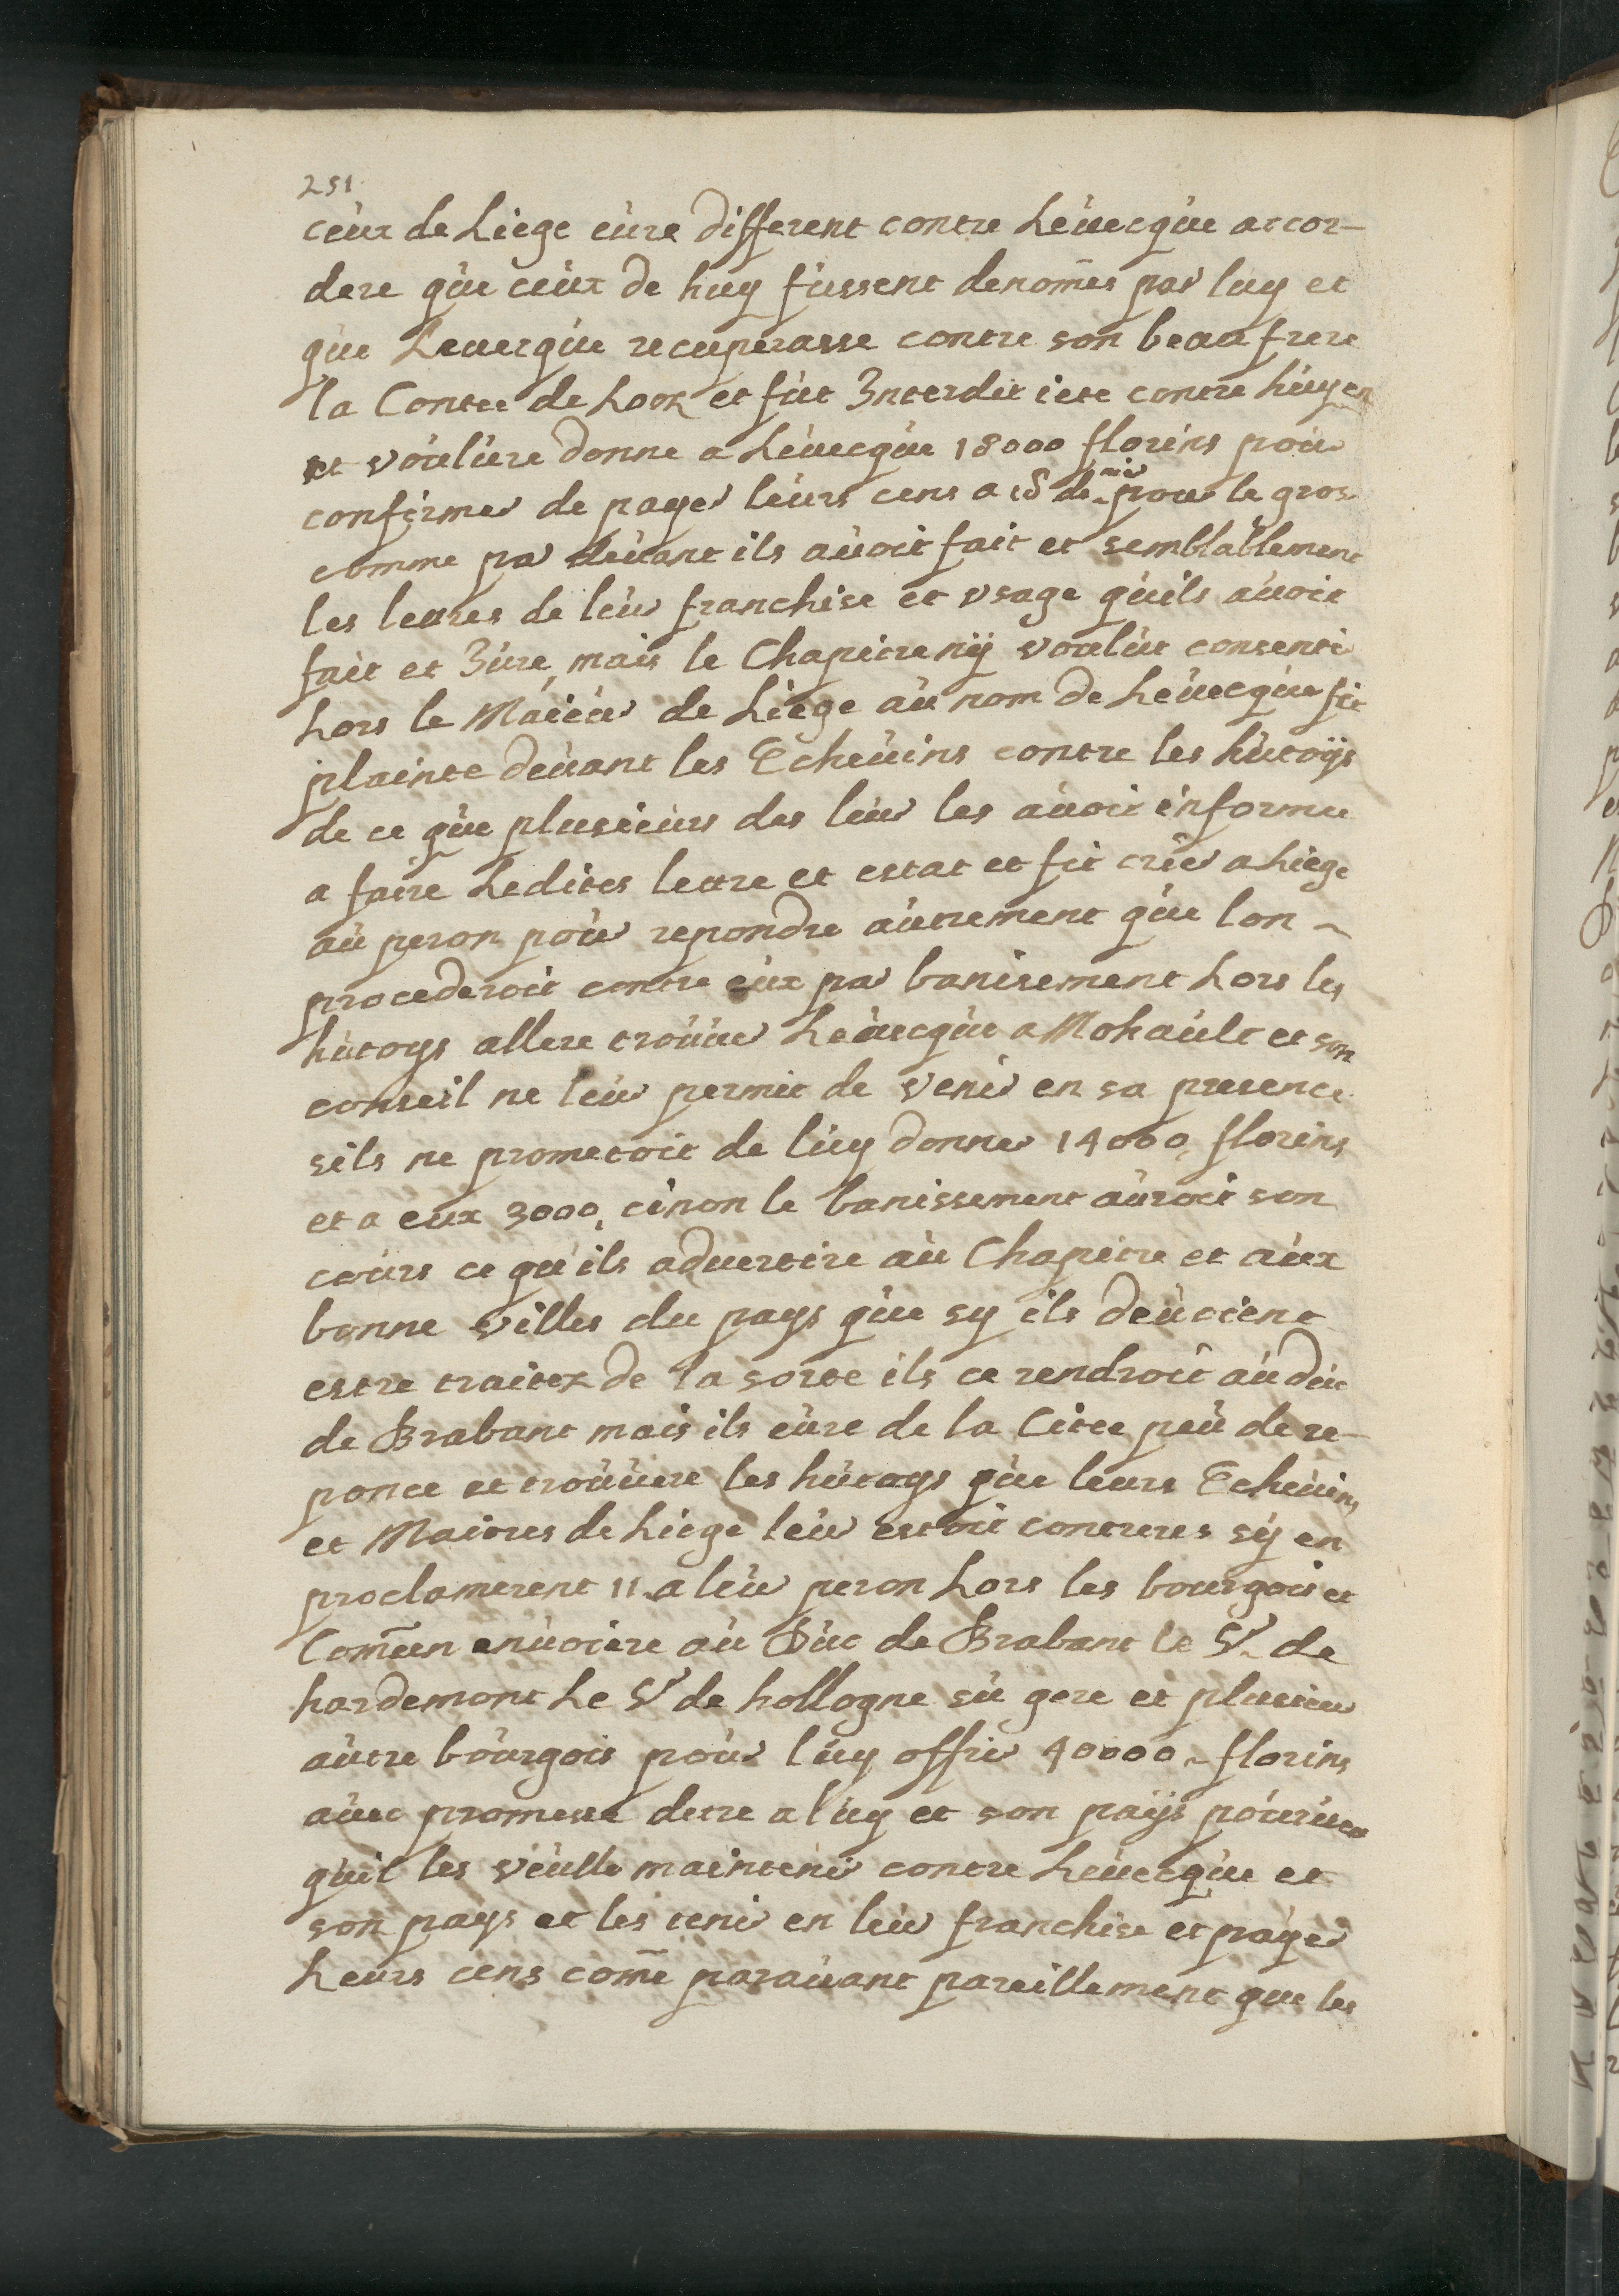 251
ceux de Liege eure different contre Leuecque accor-
dere que ceux de huy fussent denom̃es par luy et
que Leuecque recuperasse contre son beau frere
la Contee de Looz et fut Interdit iete contre huy en
et voulure donne a Leuecque 18000 florins pour
confirmer de payer leurs cens a 18 denier pour le gros
comme par deuant ils auoit fait et semblablement
les lettres de leur franchise et vsage quils auoit
fait et Jure, mais le Chapitre nÿ voulut consentir
Lors le Maieur de Liege au nom de Leuecque fit
plainte deuant les Echeuins contre les hutoÿs
de ce que plusieurs des leur les auoit informe
a faire Ledites lettre et estat et fit crier a Liege
au peron pour repondre autrement que lon ~
procederoit contre eux par banisement Lors les
hutoys allere trouuer Leuecque a Mohault et son
conseil ne leur permit de venir en sa presence
sils ne prometoit de luy donner 14000, florins
et a eux 3000, cinon le banissement auroit son
cours ce qu'ils aduertire au Chapitre et aux
bonne villes du pays que sy ils deuoient
estre traitez de la sorte ils ce rendroit au duc
de Brabant mais ils eure de la Citee peu de re-
ponce et trouuere les hutoys que leurs Echeuins
et Maitres de Liege leur estoit contreres sÿ en
proclamerent 11 a leur peron Lors les bourgois et
Com̃un enuoiere au Duc de Brabant le Sr de
hardemont Le Sr de hollogne su gere et plusieur
autre bourgois pour luy offrir 40000 florins
auec promesse detre a luy et son paÿs pourueu
quil les veulle maintenir contre Leuecque et
son pays et les tenir en leur franchise et payer
Leurs cens com̃e parauant pareillement que les